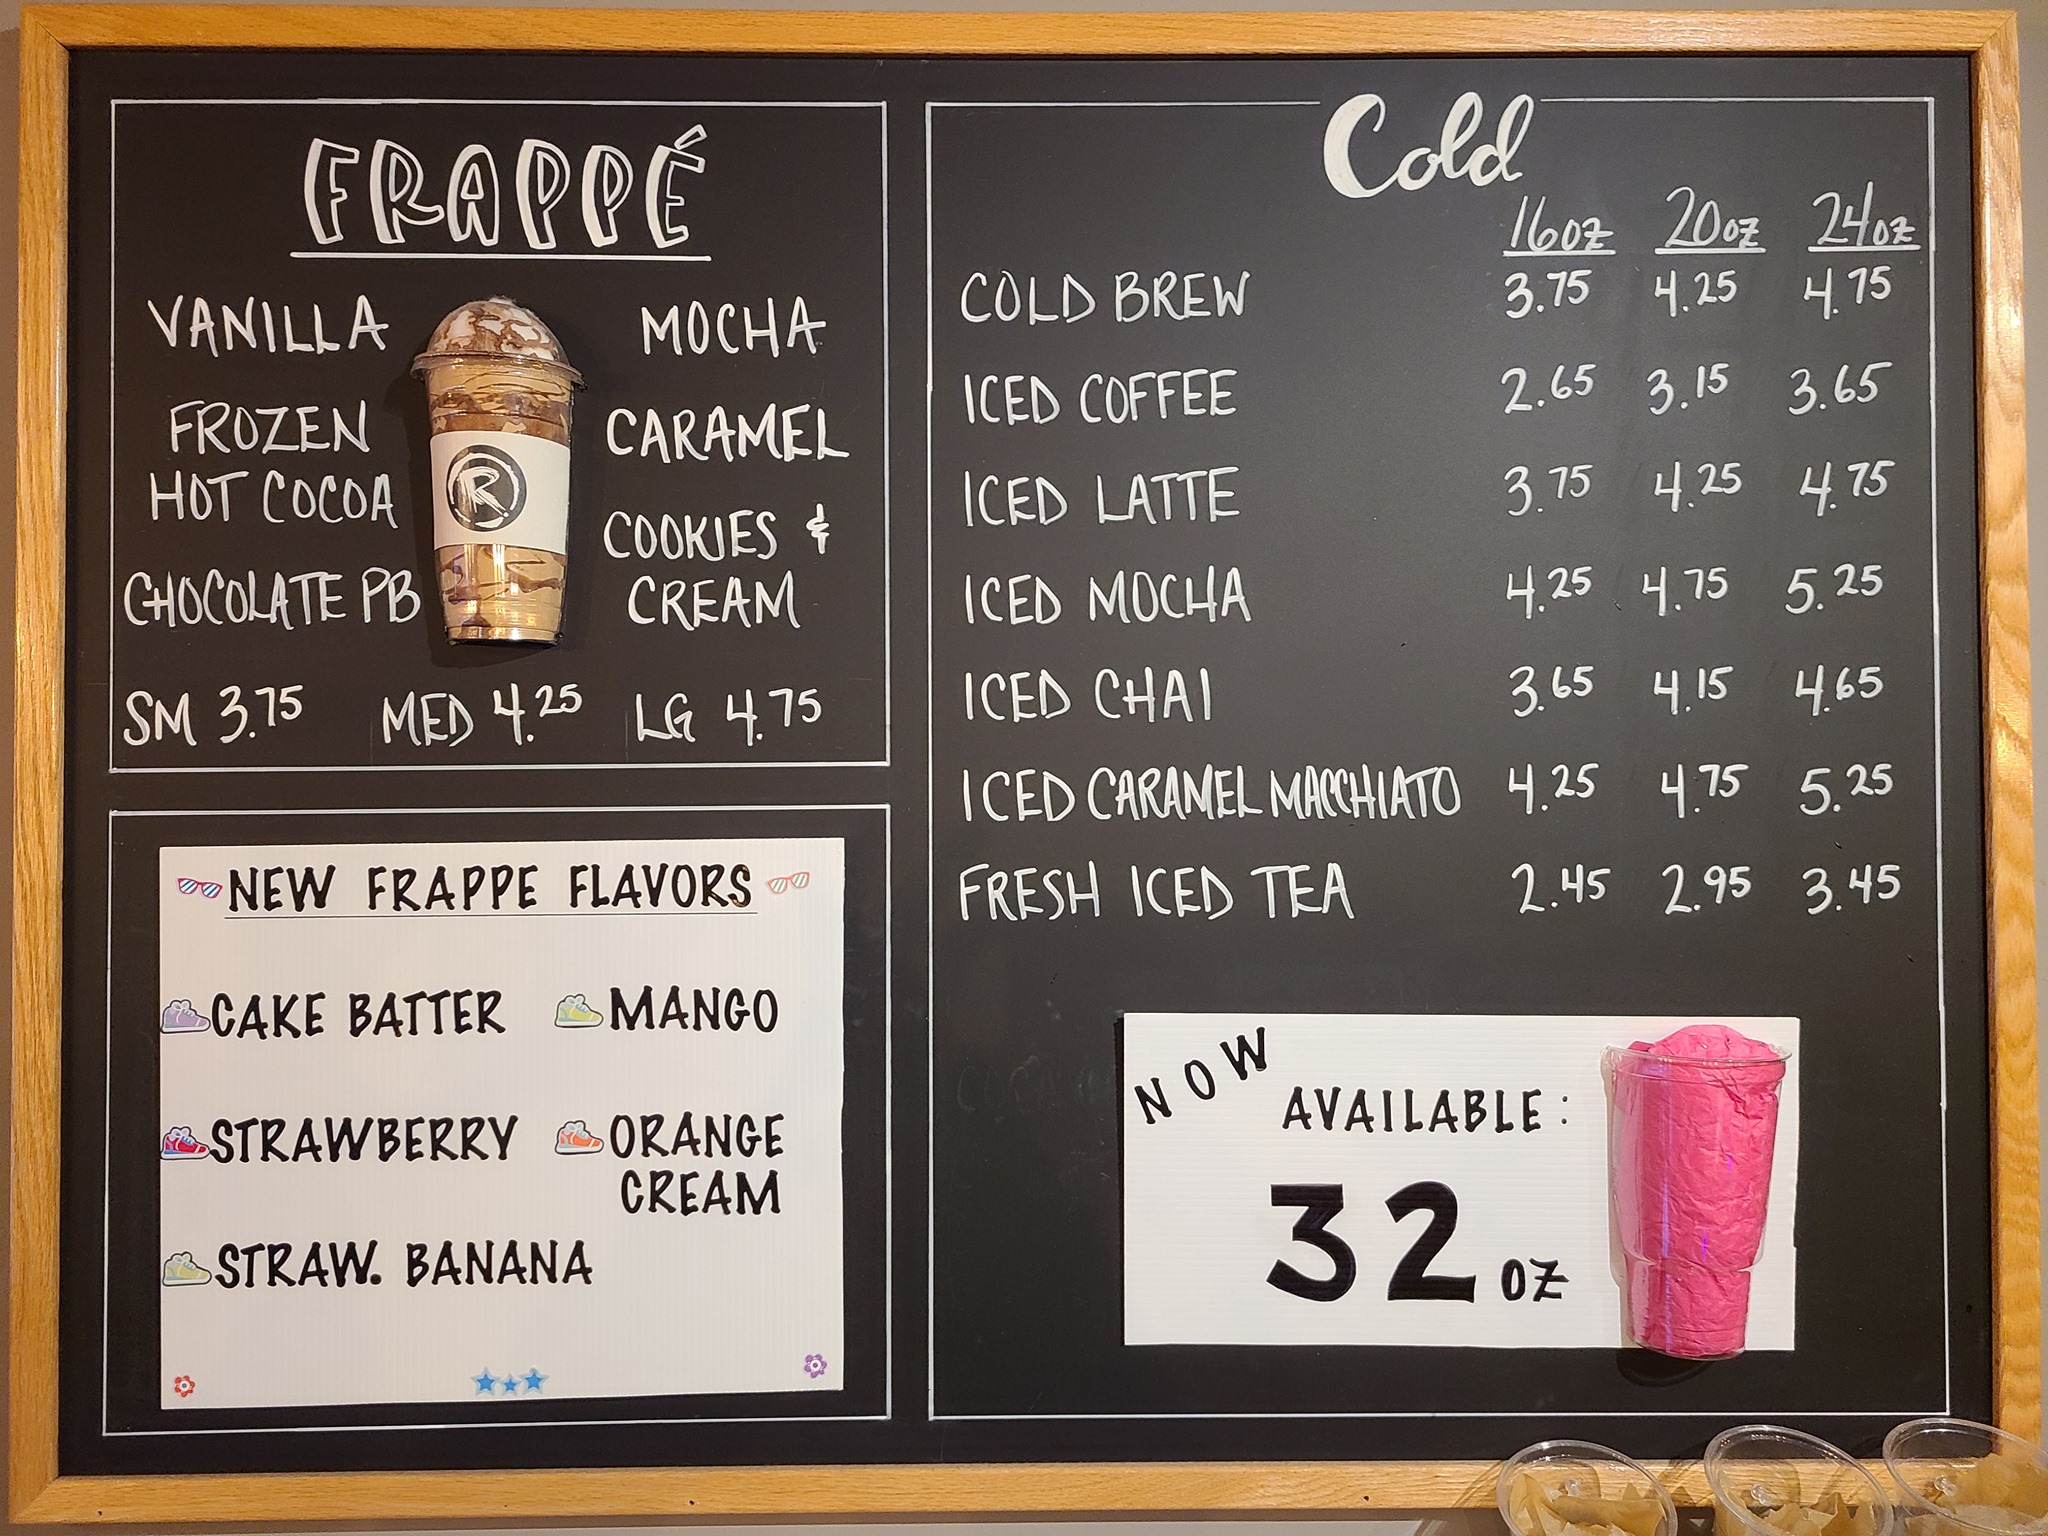 FRAPPÉ
VANILLA
MOCHA
FROZEN
HOT COCOA
CARAMEL
COOKIES &
CREAM
CHOCOLATE PB
R
SM 3.75 MED 4.25 LG 4.75
NEW FRAPPE FLAVORS
CAKE BATTER MANGO
STRAWBERRY ORANGE
CREAM
STRAW. BANANA
Cold
16oz 20oz 24oz
COLD BREW 3.75 4.25 4.75
ICED COFFEE 2.65 3.15 3.65
ICED LATTE 3.75 4.25 4.75
ICED MOCHA 4.25 4.75 5.25
ICED CHAI 3.65 4.15 4.65
ICED CARAMEL MACCHIATO 4.25 4.75 5.25
FRESH ICED TEA 2.45 2.95 3.45
NOW
AVAILABLE:
32 oz